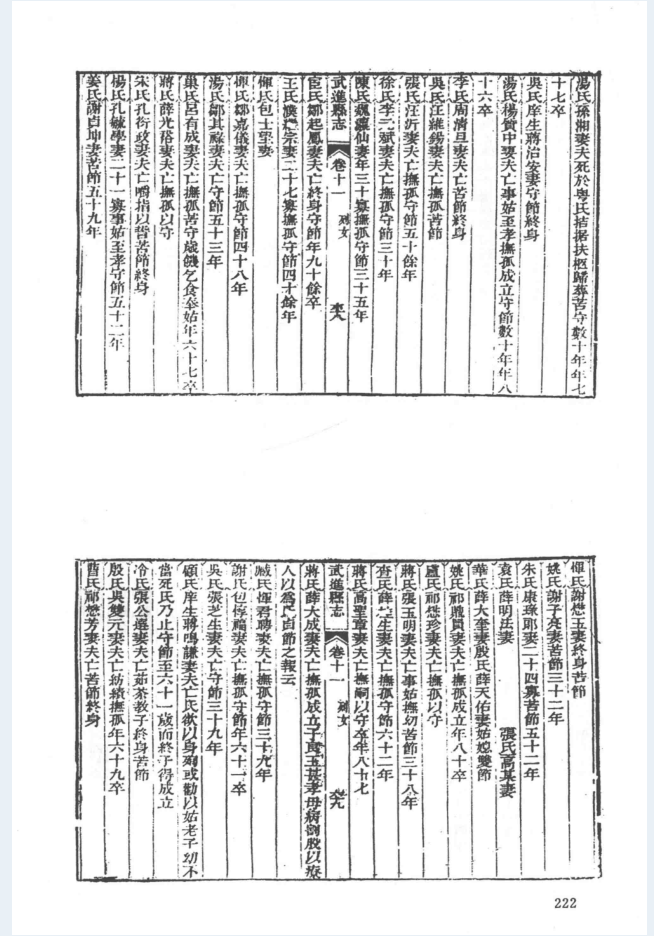 湯氏孫湘妻夫死於粵氏拮据扶柩歸葬苦守數十年年七
十七卒
吳氏庠生蔣治安妻守節終身
湯氏楊質中妻夫亡事姑至孝撫孤成立守節數十年年八
十六卒
李氏周清旦妻夫亡苦節終身
吳氏汪維錫妻夫亡撫孤苦節
張氏汪沂妻夫亡撫孤守節五十餘年
徐氏李元斌妻夫亡撫孤守節三十年
陳氏魏羅仙妻年三十寡撫孤守節三十五年
武進縣志 卷十一 列女
宦氏鄒起鳳妻夫亡終身守節年九十餘卒
王氏濮宗妻二十七寡撫孤守節四十餘年
惲氏包士望妻
惲氏鄒嘉儀妻夫亡撫孤守節四十八年
湯氏鄒其祿妻夫亡守節五十三年
巢氏呂有成妻夫亡撫孤苦守歲饑乞食奉姑年六十七卒
蔣氏薛光裕妻夫亡撫孤以守
朱氏孔衍政妻夫亡嚙指以誓苦節終身
楊氏孔毓學妻二十一寡事姑至孝守節五十二年
姜氏謝貞坤妻苦節五十九年
惲氏謝懋玉妻終身苦節
姚氏謝子堯妻苦節三十二年
朱氏康琭妻二十四寡苦節五十二年
袁氏薛明法妻 張氏高某妻
華氏薛大奎妻殷氏薛天佑妻姑媳雙節
姚氏祁鼎貢妻夫亡撫孤成立年八十卒
盧氏祁懋珍妻夫亡撫孤以守
蔣氏張玉明妻夫亡事姑撫幼苦節三十八年
杏氏薛生妻夫亡撫孤守節六十二年
蔣氏高聖章妻夫亡撫嗣以守卒年八十七
武進縣志 卷十一 列女
蔣氏薛大成妻夫亡撫孤成立子貢玉甚孝母病刲股以療
人以為貞節之報云
臧氏惲君聘妻夫亡撫孤守節三十九年
謝氏包惇福妻夫亡撫孤守節年六十一卒
吳氏張芝生妻夫亡守節三十九年
顧氏庠生蔣鳴謙妻夫亡氏欲以身殉或勸以姑老子幼不
當死氏乃止守節至六十一歲而終子得成立
冷氏張公選妻夫亡茹荼教子終身苦節
殷氏吳雙元妻夫亡紡績撫孤年六十九卒
曹氏祁懋芳妻夫亡苦節終身
222